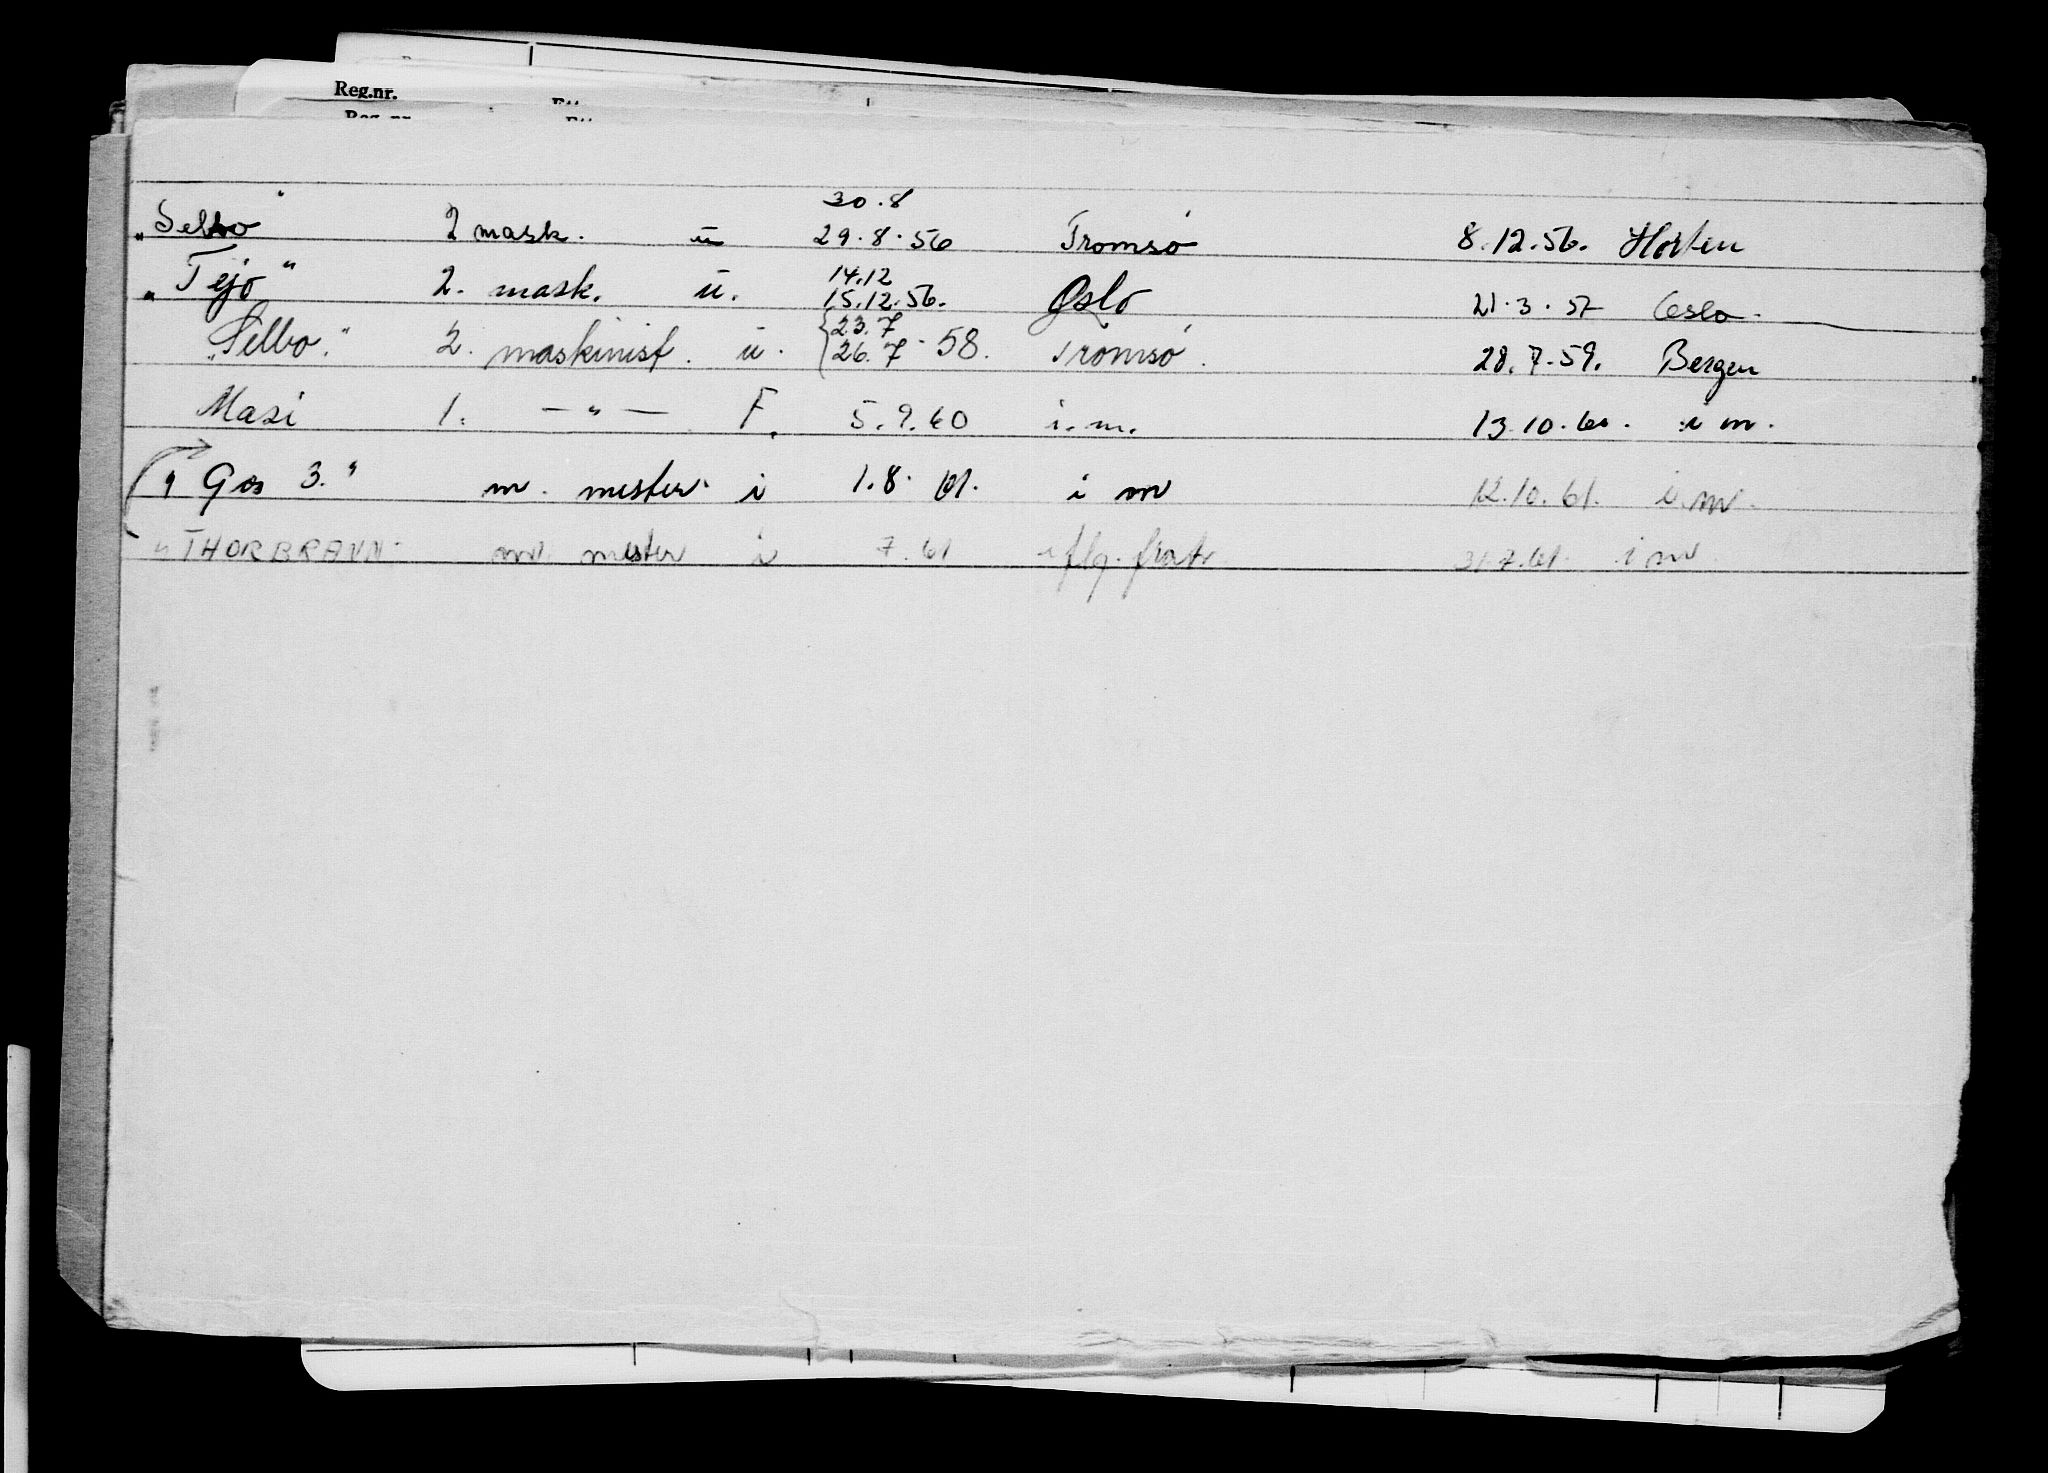 Reg.nr.
Reg. nr.
30.8
"Selbo" 2 mask. u 29.8.56 Tromsø 8.12.56. Horten
14.12
"Tejo" 2. mask. u. 15.12.56. Oslo 21.3.57 Oslo.
23.7
"Selbo." 2. maskinist. u. 26.7.58. Tromsø. 28.7.59. Bergen
Masi 1. —"— F. 5.9.60 i.m. 13.10.60. i m.
"Gos 3." m. mester i 1.8.61. i m 12.10.61. i m.
"THORBRANN" m. mester i 7.61 i flg. frakt 31.7.61. i m